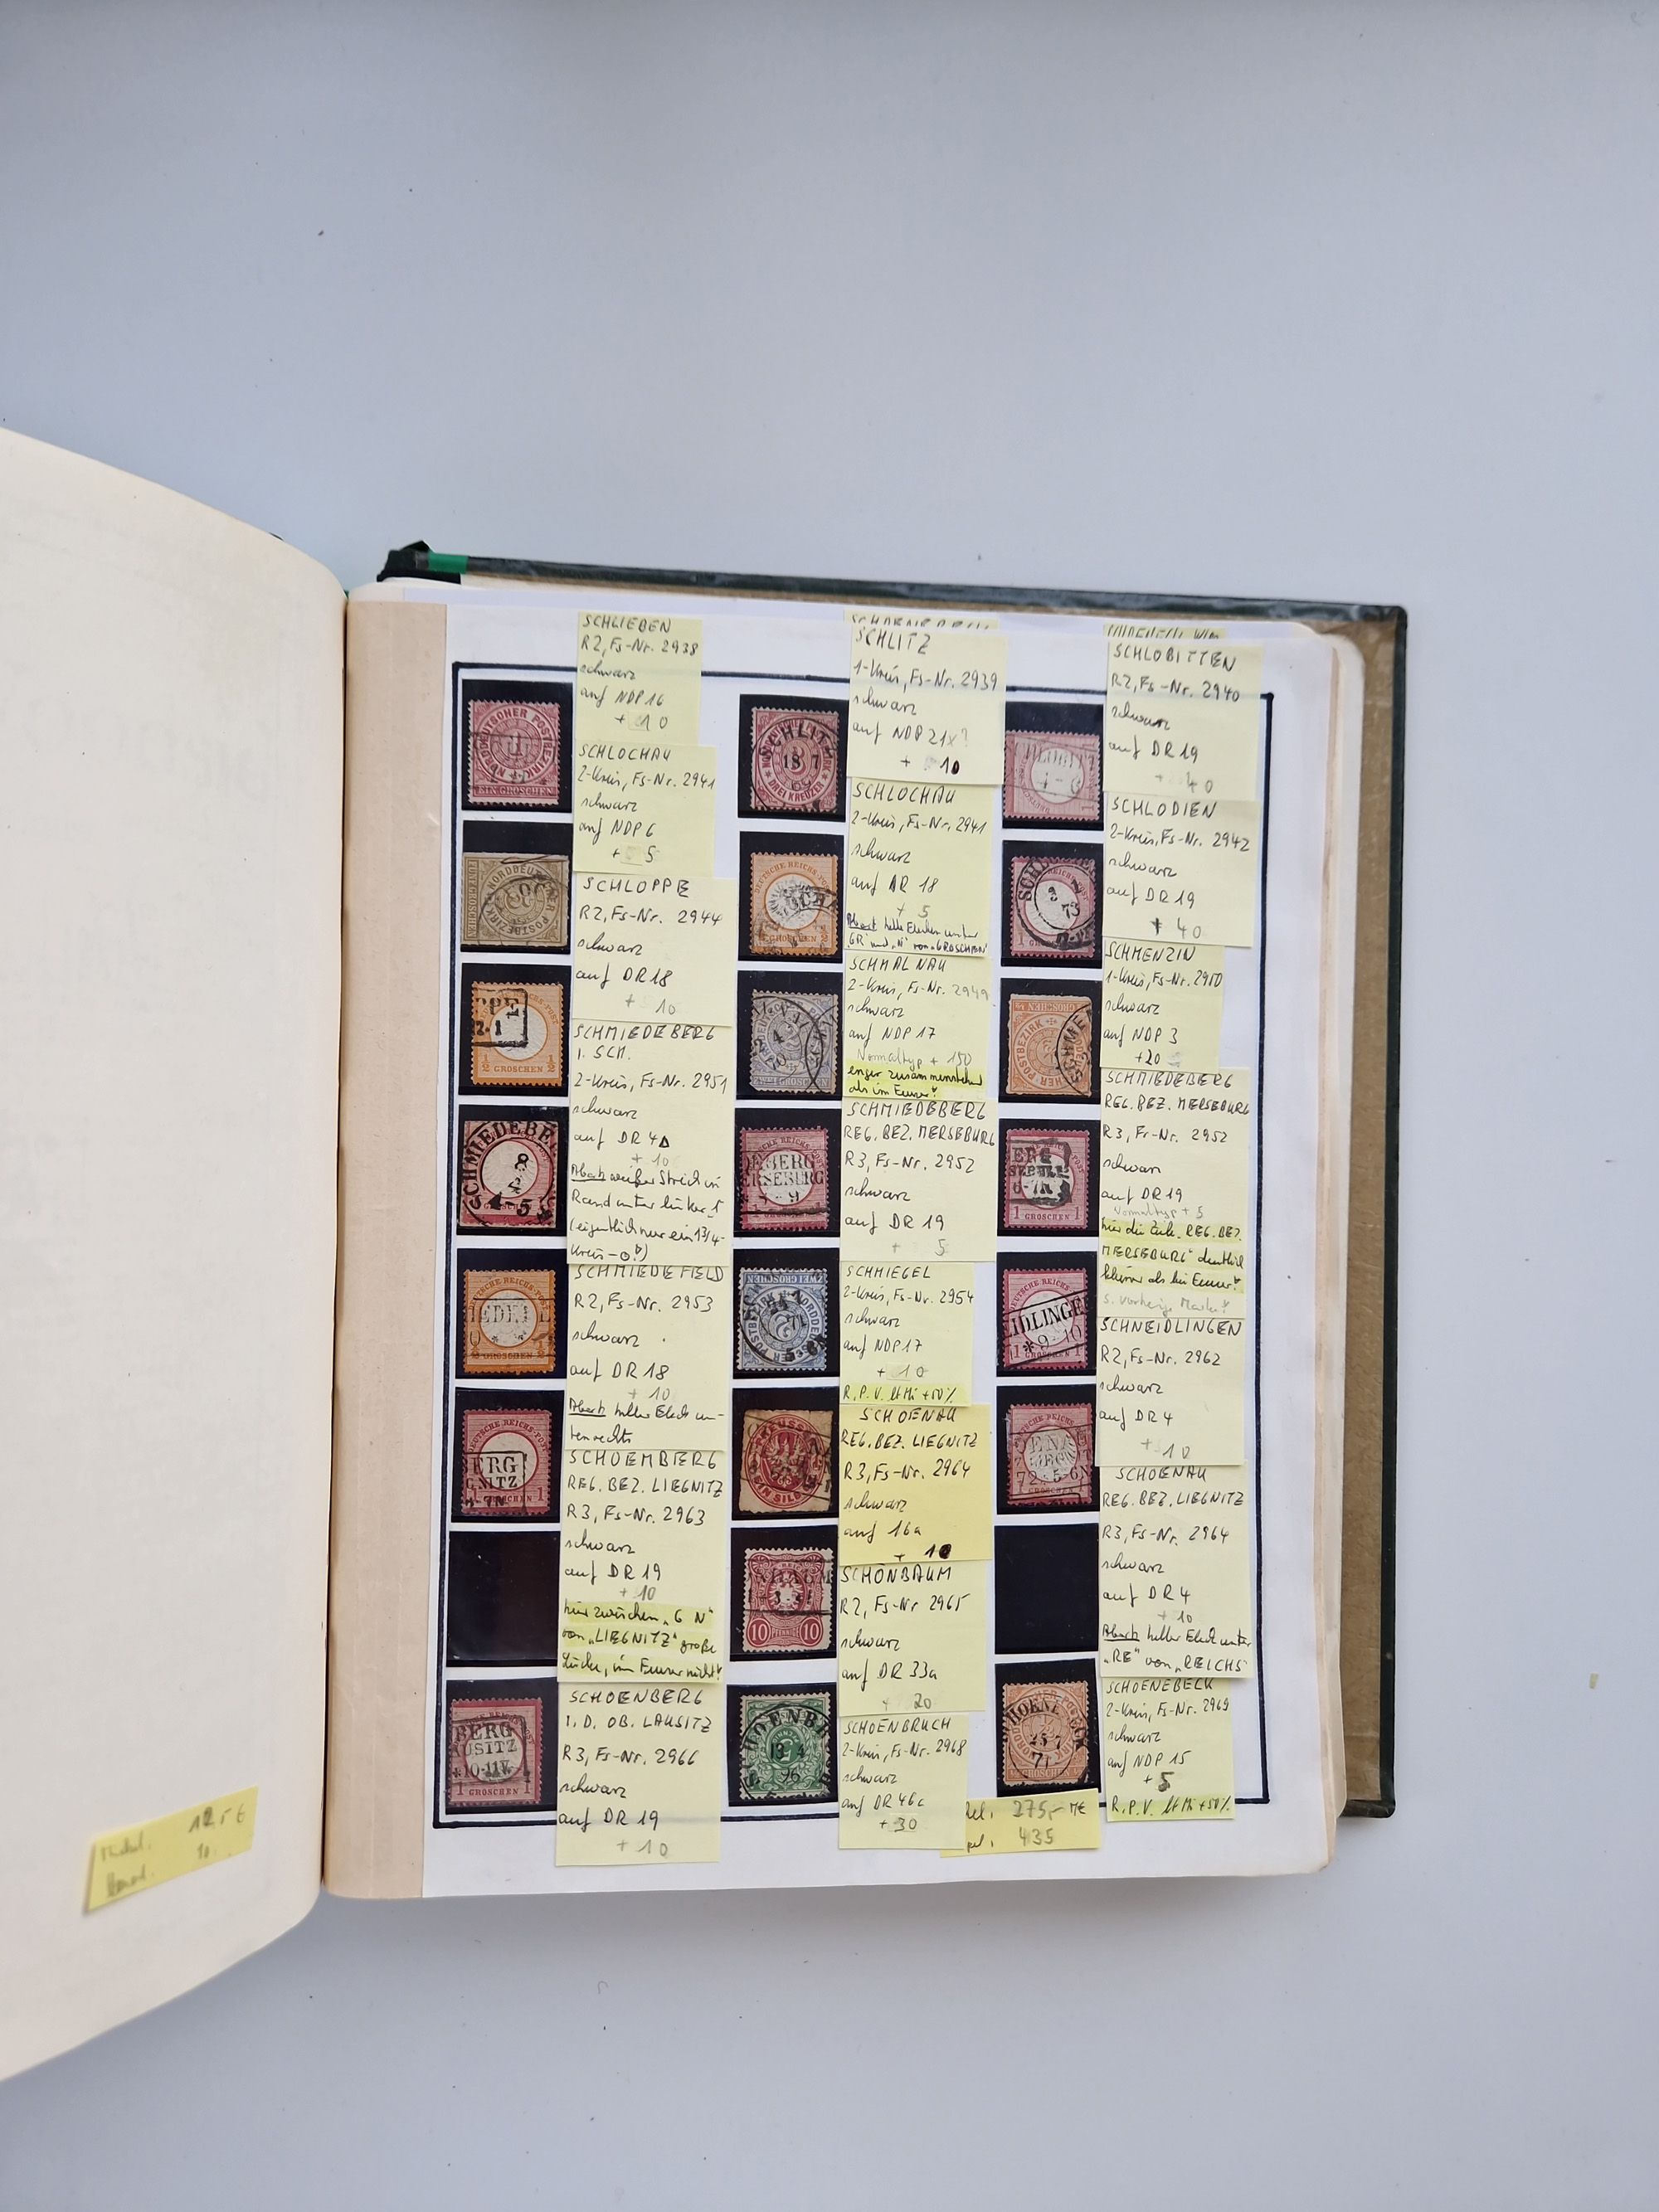 SCHLIEBEN
R2, Fs-Nr. 2938
schwarz
auf NDP 16
+ 10
SCHLOCHAU
2-Kreis, Fs-Nr. 2941
schwarz
auf NDP 6
+ 5
SCHLOPPE
R2, Fs-Nr. 2944
schwarz
auf DR 18
+ 10
SCHMIEDEBERG
I. SCH.
2-Kreis, Fs-Nr. 2951
schwarz
auf DR 4
+ 10
Abart: weißer Strich im
Rand unter linker 1
(eigentlich nur ein 1 3/4-
Kreis-O!)
SCHMIEDEFELD
R2, Fs-Nr. 2953
schwarz
auf DR 18
+ 10
Abart: heller Fleck un-
ten rechts
SCHOEMBERG
REG. BEZ. LIEGNITZ
R3, Fs-Nr. 2963
schwarz
auf DR 19
+ 10
hier zwischen „G N"
von „LIEGNITZ" große
Lücke, im Feuser nicht!
SCHOENBERG
I. D. OB. LAUSITZ
R3, Fs-Nr. 2966
schwarz
auf DR 19
+ 10
SCHOENEBECK
SCHLITZ
1-Kreis, Fs-Nr. 2939
schwarz
auf NDP 21x?
+ 10
SCHLOCHAU
2-Kreis, Fs-Nr. 2941
schwarz
auf DR 18
+ 5
Abart: helle Flecken unter
„GR" und „N" von „GROSCHEN"
SCHMALNAU
2-Kreis, Fs-Nr. 2949
schwarz
auf NDP 17
Normaltyp + 150
enger zusammenstehend
als im Feuser!
SCHMIEDEBERG
REG. BEZ. MERSEBURG
R3, Fs-Nr. 2952
schwarz
auf DR 19
+ 5
SCHMIEGEL
2-Kreis, Fs-Nr. 2954
schwarz
auf NDP 17
+ 10
R.P.V. lt Mi +50%
SCHOENAU
REG. BEZ. LIEGNITZ
R3, Fs-Nr. 2964
schwarz
auf 16a
+ 10
SCHÖNBAUM
R2, Fs-Nr 2965
schwarz
auf DR 33a
+ 20
SCHOENBRUCH
2-Kreis, Fs-Nr. 2968
schwarz
auf DR 46c
+ 30
SCHLOBITTEN
R2, Fs-Nr. 2940
schwarz
auf DR 19
+ 40
SCHLODIEN
2-Kreis, Fs-Nr. 2942
schwarz
auf DR 19
+ 40
SCHMENZIN
1-Kreis, Fs-Nr. 2950
schwarz
auf NDP 3
+20
SCHMIEDEBERG
REG. BEZ. MERSEBURG
R3, Fs-Nr. 2952
schwarz
auf DR 19
Normaltyp + 5
hier die Zeile „REG. BEZ.
MERSEBURG" deutlich
kleiner als bei Feuser!
s. vorherige Marke!
SCHNEIDLINGEN
R2, Fs-Nr. 2962
schwarz
auf DR 4
+ 10
SCHOENAU
REG. BEZ. LIEGNITZ
R3, Fs-Nr. 2964
schwarz
auf DR 4
+ 10
Abart: heller Fleck unter
„RE" von „REICHS"
SCHOENEBECK
2-Kreis, Fs-Nr. 2969
schwarz
auf NDP 15
+ 5
R.P.V. lt Mi +50%
275,- M€
435
EIN GROSCHEN
SCHLITZ
18 7
69
DREI KREUZER
SCHL
3
73
1 GROSCHEN
PPE
2.1
GROSCHEN
2 4
70
SCHME
SCHMIEDEBE
8
4-5
EBERG
ERSEBURG
ERG
6-7N
1 GROSCHEN 1
ZWEI GROSCHEN
71
EIDLINGE
*9-10
ERG
GNITZ
EIN SILB
1 GROSCHEN 1
10 PFENNIG 10
BERG
USITZ
*10-11V.
1 GROSCHEN 1
HOENBR
13 4
96
HOENE ECK
25 7
71
125 €